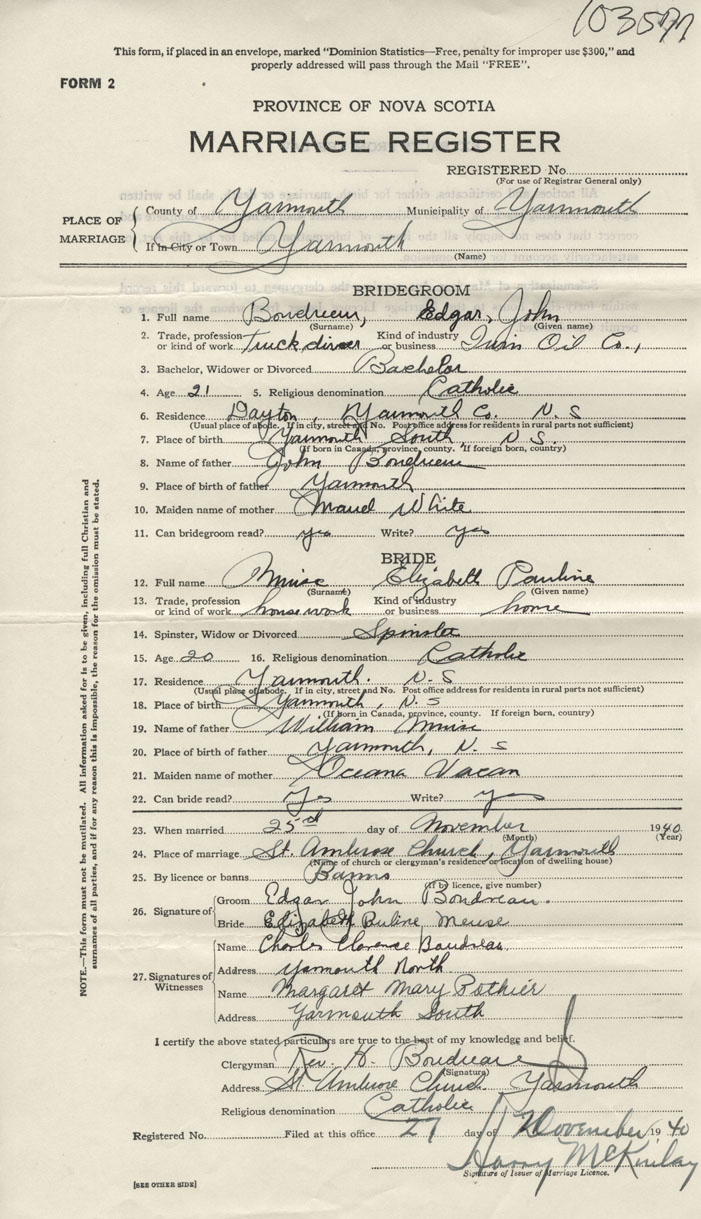 103577
This form, if placed in an envelope, marked "Dominion Statistics—Free, penalty for improper use $300," and
properly addressed will pass through the Mail "FREE".
FORM 2
PROVINCE OF NOVA SCOTIA
MARRIAGE REGISTER
REGISTERED No.
(For use of Registrar General only)
PLACE OF MARRIAGE
County of Yarmouth Municipality of Yarmouth
If in City or Town Yarmouth
(Name)
BRIDEGROOM
1. Full name Boudreau, Edgar, John
(Surname) (Given name)
2. Trade, profession or kind of work Truck driver Kind of industry or business Irvin Oil Co.,
3. Bachelor, Widower or Divorced Bachelor
4. Age 21 5. Religious denomination Catholic
6. Residence Dayton, Yarmouth Co. N. S
(Usual place of abode. If in city, street and No. Post office address for residents in rural parts not sufficient)
7. Place of birth Yarmouth South, N. S.
(If born in Canada, province, county. If foreign born, country)
8. Name of father John Boudreau
9. Place of birth of father Yarmouth
10. Maiden name of mother Maud White
11. Can bridegroom read? yes Write? yes
BRIDE
12. Full name Muise Elizabeth Pauline
(Surname) (Given name)
13. Trade, profession or kind of work housework Kind of industry or business home
14. Spinster, Widow or Divorced Spinster
15. Age 20 16. Religious denomination Catholic
17. Residence Yarmouth. N. S
(Usual place of abode. If in city, street and No. Post office address for residents in rural parts not sufficient)
18. Place of birth Yarmouth, N. S
(If born in Canada, province, county. If foreign born, country)
19. Name of father William Muise
20. Place of birth of father Yarmouth, N. S
21. Maiden name of mother Oceana Vacan
22. Can bride read? Yes Write? yes
23. When married 25rd day of November 1940
(Month) (Year)
24. Place of marriage St. Ambrose Church, Yarmouth
(Name of church or clergyman's residence or location of dwelling house)
25. By licence or banns Banns
(If by licence, give number)
26. Signature of Groom Edgar John Boudreau.
Bride Elizabeth Puline Meuse
27. Signatures of Witnesses
Name Charles Clarence Boudreau
Address Yarmouth North
Name Margaret Mary Pothier
Address Yarmouth South
I certify the above stated particulars are true to the best of my knowledge and belief.
Clergyman Rev. H. Boudreau
(Signature)
Address St Ambrose Church Yarmouth
Religious denomination Catholic
Registered No. Filed at this office 27 day of November 1940
Harry McKinlay
Signature of Issuer of Marriage Licence.
[SEE OTHER SIDE]
NOTE.—This form must not be mutilated. All information asked for is to be given, including full Christian and
surnames of all parties, and if for any reason this is impossible, the reason for the omission must be stated.